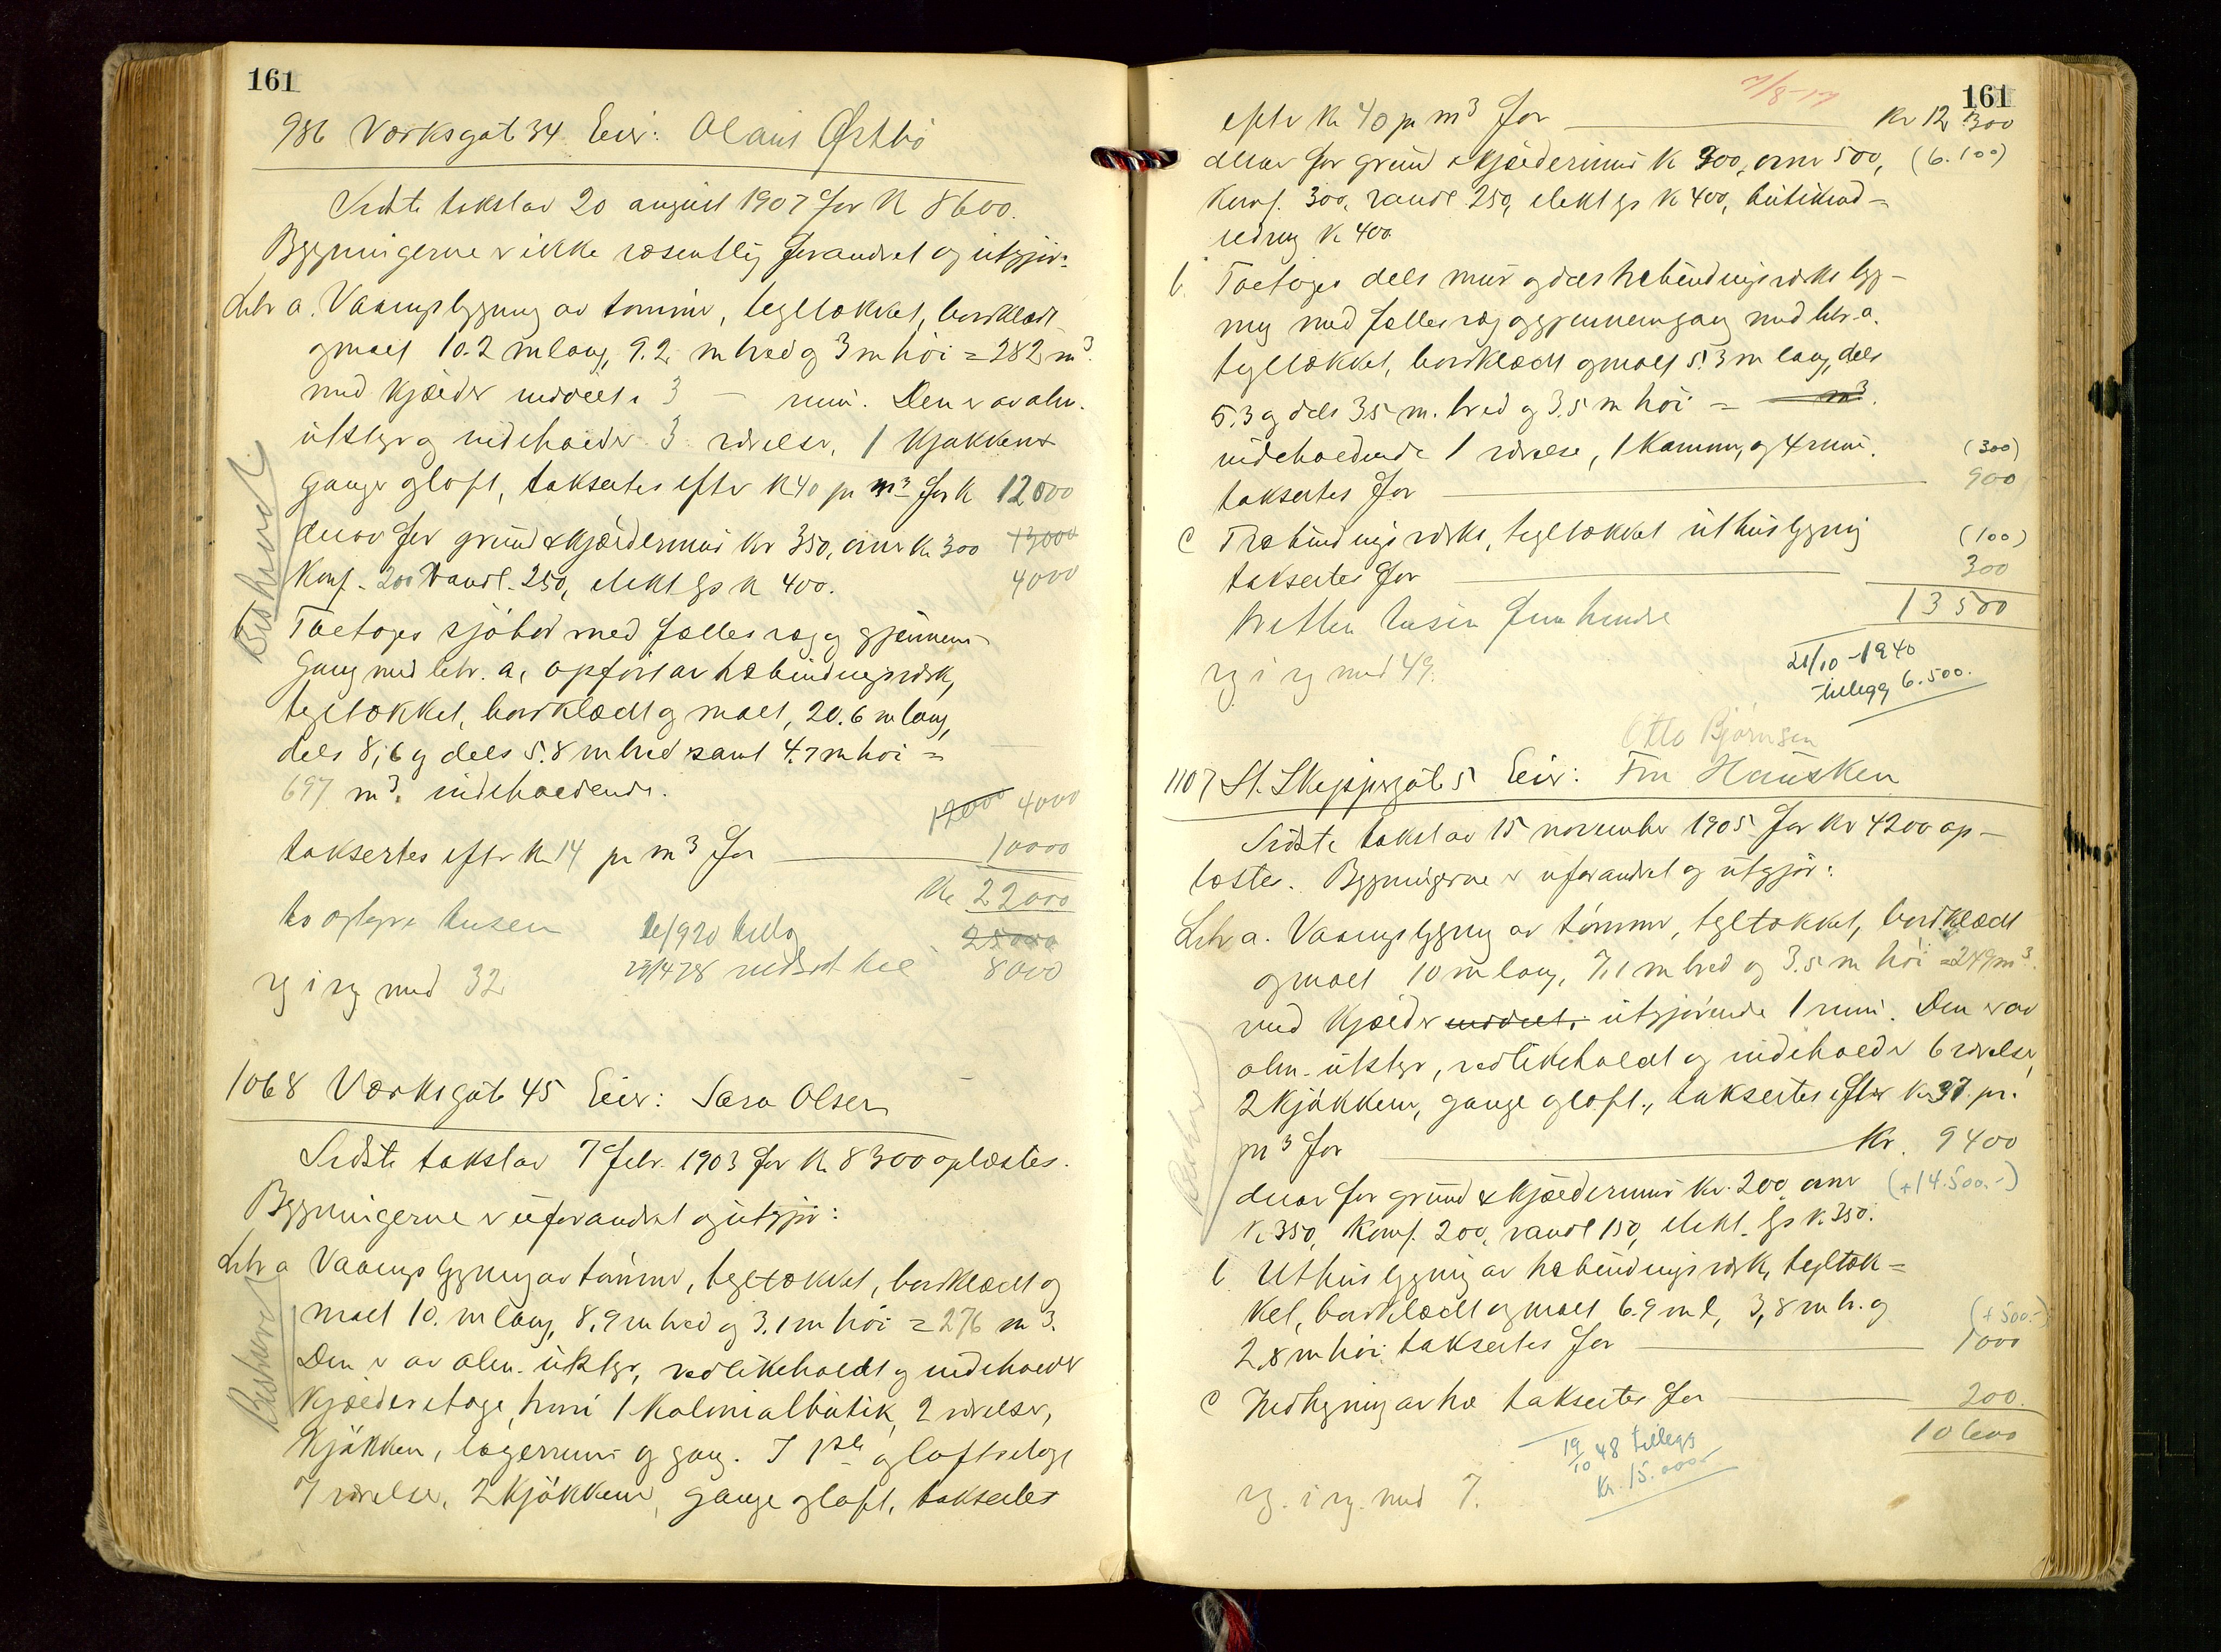 161
986 Værksgat 34 Eier: Olaus Østbö
Sidste takst av 20 august 1907 for K 8600.
Bygningerne er ikke væsentlig forandret og utgjör:
Litr a. Vaaningsbygning av tømmer, tegltækket, bordklædt
og malt 10.2 m lang, 9.2 m bred og 3 m höi = 282 m³.
med kjælder inddelt i 3 – rum. Den er av alm.
utstyr og indeholder 3 værelser, 1 kjøkken
gange og loft, takseres efter K 40 pr m³ for K 12000
derav for grund & kjældermur Kr 350, ovner K 300 13000
Komf. 200 Vandl. 250, elekt lys K 400. 4000
b Toetages sjöbod med fælles væg og gjennem-
gang med litr. a, opfört av træbindingsverk,
tegltækket, bordklædt og malt, 20.6 m lang,
dels 8,6 og dels 5.8 m bred samt 4.7 m höi =
697 m³. indeholdende.
12000 4000
takseres efter K 14 pr m³ for 10000
Kr 22000
to og tyve tusen
/920 tillæg 25000
23/4 28 nedsat til 8000
væg i væg med 32
Bishand
1068 Værksgat 45 Eier: Sara Olsen
Sidste takst av 7 febr. 1903 for K 8300 oplæstes.
Bygningerne er uforandret og utgjör:
Litr a Vaaningsbygning av tömmer, tegltækket, bordklædt og
malt 10. m lang, 8,9 m bred og 3.1 m höi = 276 m³.
Den er av alm. utstyr, vedlikeholdt og indeholder
kjælderetage, hvori 1 Kolonialbutik, 2 værelser,
kjøkken, lagerrum og gang. I 1ste og loftsetage
7 værelser, 2 kjökkener, gange og loft, takseres
161
7/8-17
efter K 40 pr m³ for Kr 12.300
derav for grund & kjældermur K 900, ovner 500, (6.100)
Komf. 300, vandl 250, elekt lys K 400, butikind-
redning K 400
b. Toetages dels mur og dels træbindingsverks byg-
ning med fælles væg og gjennemgang med litr. a.
tegltækket, bordklædt og malt 5.3 m lang, dels
5.3 og dels 3.5 m. bred og 3.5 m höi = m³.
indeholdende 1 værelse, 1 kammer, og 4 rum. (300)
takseres for 900
c Træbindingsverks, tegltækket uthusbygning (100)
takseres for 300
13500
tretten tusen fem hundre
væg i væg med 49.
21/10-1940
tillegg 6.500.
Otto Bjørnsen
1107 St. Skippergat 5 Eier: Fru Hausken
Sidste takst av 15 november 1905 for Kr 4200 op-
læstes. Bygningerne er uforandret og utgjör:
Litr a. Vaaningsbygning av tömmer, tegltækket, bordklædt
og malt 10 m lang, 7,1 m bred og 3.5 m höi = 249 m³.
med kjælder inddelt i utgjörende 1 rum. Den er av
alm. utstyr, vedlikeholdt og indeholder 6 værelser,
2 kjökkener, gange og loft., takseres efter Kr 37. pr.
m³ for Kr. 9400
derav for grund & kjældermur Kr. 200 ovner (+14.500.-)
K 350, Komf. 200, vandl 150, elekt. lys K. 350.
b Uthusbygning av træbindingsverk, tegltæk-
ket, bordklædt og malt 6.9 m l, 3,8 m br. og (+500.-)
2,8 m höi takseres for 1000
c Indhegning av træ takseres for 200.
10600
19/10 48 tillegg
Kr. 15.000
væg. i væg. med 7.